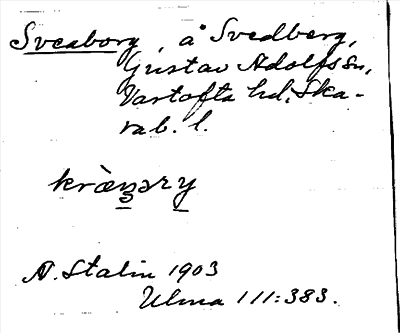 Sveaborg, å Svedberg,
Gustav Adolfs sn,
Vartofta hd, Ska-
rab. l.
kræ̀n̠əry̠
A. Stalin 1903
Ulma 111:383.